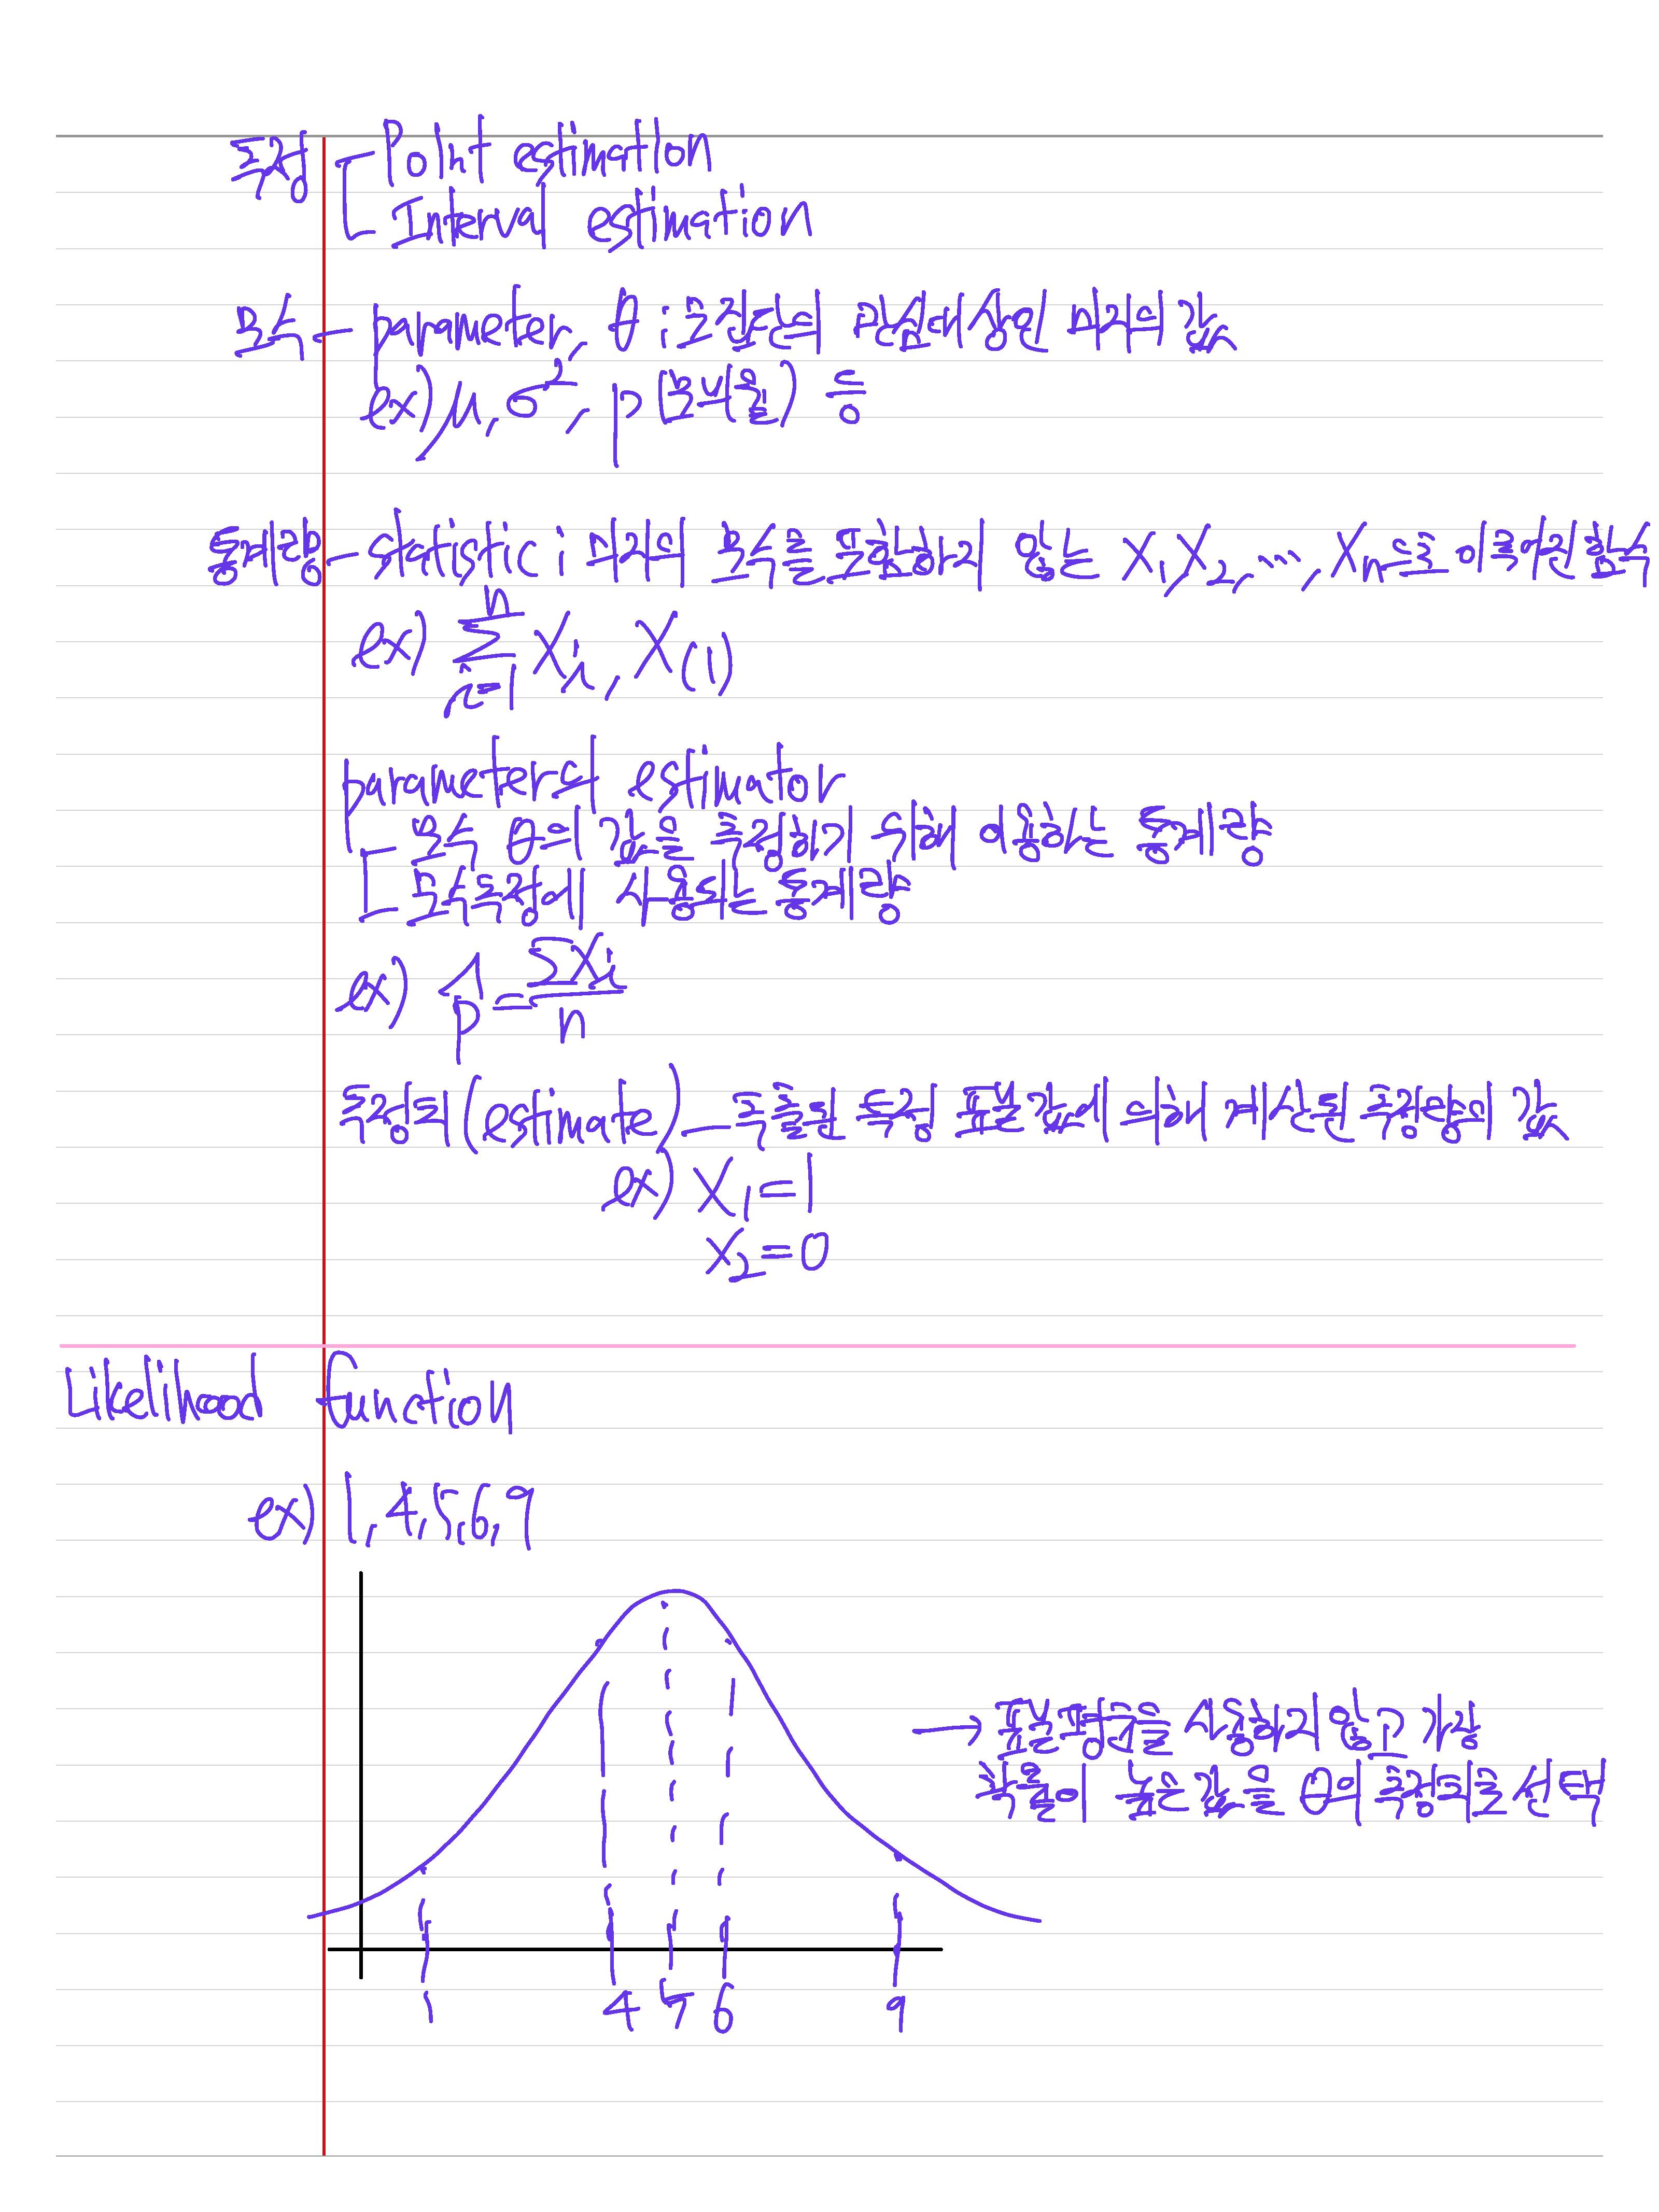 추정 Point estimation
Interval estimation
모수 - parameter, θ : 모집단의 관심대상인 미지의 값
ex) μ, σ², p (모비율) 등
통계량 - statistic : 미지의 모수를 포함하지 않는 X₁, X₂, ..., Xn으로 이루어진 함수
ex) ∑ᵢ₌₁ⁿ Xᵢ, X₍₁₎
parameter와 estimator
모수 θ의 값을 추정하기 위해 이용하는 통계량
모수추정에 사용되는 통계량
ex) p̂ = ∑Xᵢ / n
추정치 (estimate) - 추출된 특정 표본 값에 의해 계산된 추정량의 값
ex) X₁ = 1
X₂ = 0
Likelihood function
ex) 1, 4, 5, 6, 9
→ 표본평균을 사용하지 않고 가장
확률이 높은 값을 θ의 추정치로 선택
1 4 5 6 9